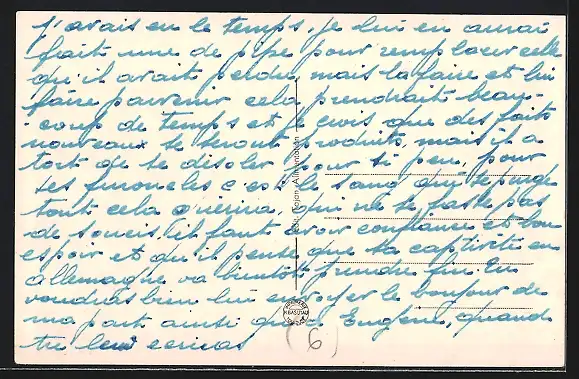 j'avais eu le temps, je lui en aurai
fait une de pipe pour remplacer celle
qu'il avait perdu mais la faire et lui
faire parvenir cela prendrait beau-
coup de temps et je crois que des faits
nouveaux se seront produits, mais il a
tort de se désoler pour si peu, pour
ses furoncles c'est le sang qui se purge
tout cela guérira, qu'il ne se fasse pas
de soucis, il faut avoir confiance et bon
espoir et qu'il pense que sa captivité en
Allemagne va bientôt prendre fin. Tu
voudras bien lui envoyer le bonjour de
ma part ainsi qu'à Eugène, quand
tu leur écriras
(6)